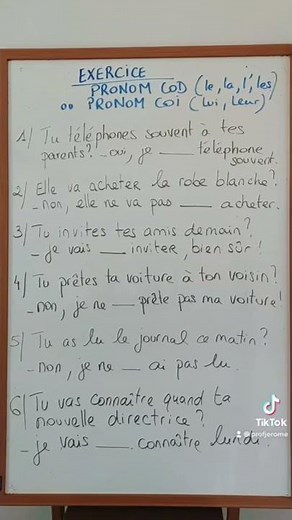 EXERCICE
PRONOM COD (le, la, l', les)
ou PRONOM COI (lui, leur)
1/ Tu téléphones souvent à tes
parents? - oui, je ____ téléphone
souvent.
2/ Elle va acheter la robe blanche?
- non, elle ne va pas ____ acheter.
3/ Tu invites tes amis demain?
- je vais ____ inviter, bien sûr!
4/ Tu prêtes ta voiture à ton voisin?
- non, je ne ____ prête pas ma voiture!
5/ Tu as lu le journal ce matin?
- non, je ne ____ ai pas lu.
6/ Tu vas connaître quand ta
nouvelle directrice?
- je vais ____ connaître lundi.
TikTok
@profjerome